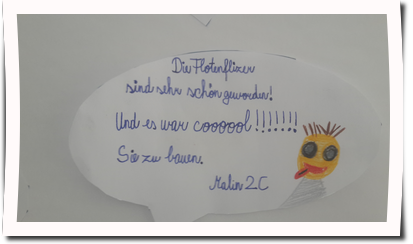 Die Flötenflitzer
sind sehr schön geworden!
Und es war coooool!!!!!!!
Sie zu bauen.
Malin 2C